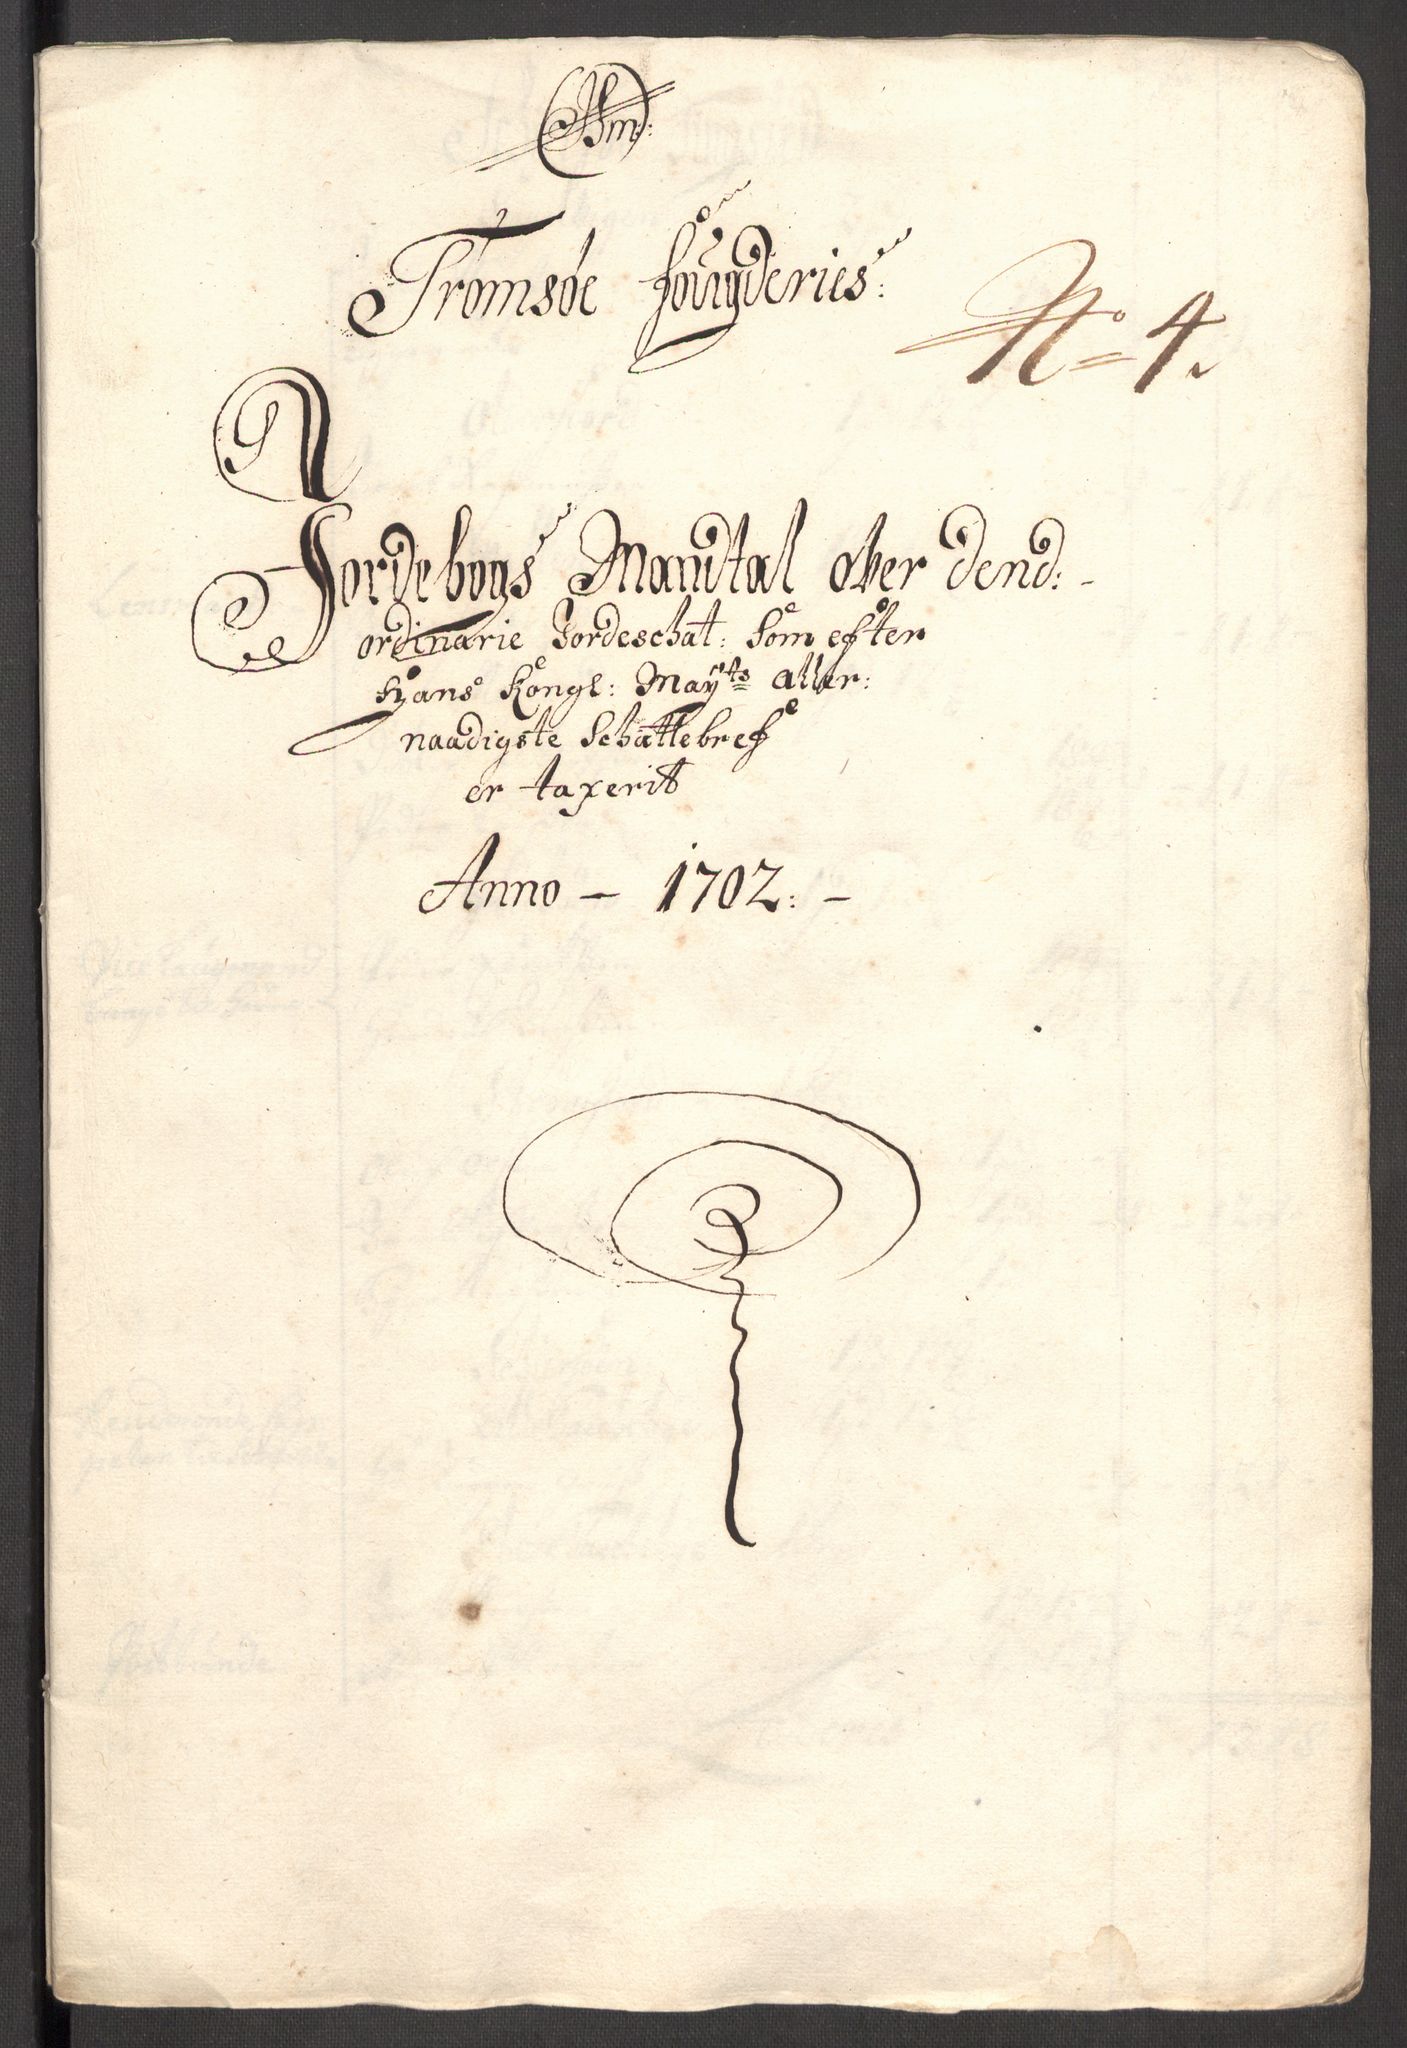 Tromsöe fougderies:
No 4.
Jordebogs Mandtal ofver dend:
ordinarie Jordeschat: som efter
Hans Kongl: Mayts aller:
naadigste Schattebref
er taxerit
Anno - 1702: -